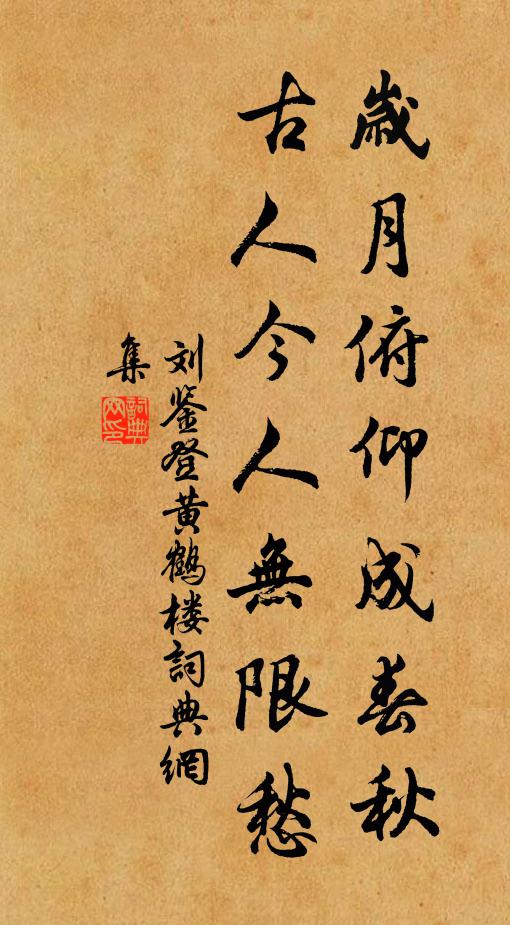 歲月俯仰成春秋
古人今人無限愁
刘鉴登黄鶴楼詞典網
集
詞典網印